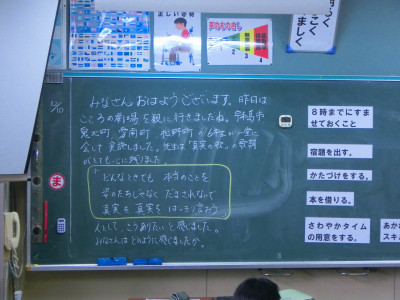 正しい姿勢
声のものさし
12/10
みなさん おはようございます。昨日は
こころの劇場を観に行きましたね。宇和島市
鬼北町 愛南町 松野町の6年生が一堂に
会して 実施しました。先生は「真実の歌」の歌詞
がとても心に残りました
どんなときでも 本当のことを
だまされないで
真実を 真実を はっきり言おう
人として、こうありたいと感じました。
みなさんはどのように感じましたか。
ま
8時までにすま
せておくこと
宿題を出す。
かたづけをする。
本を借りる。
さわやかタイム
の用意をする。